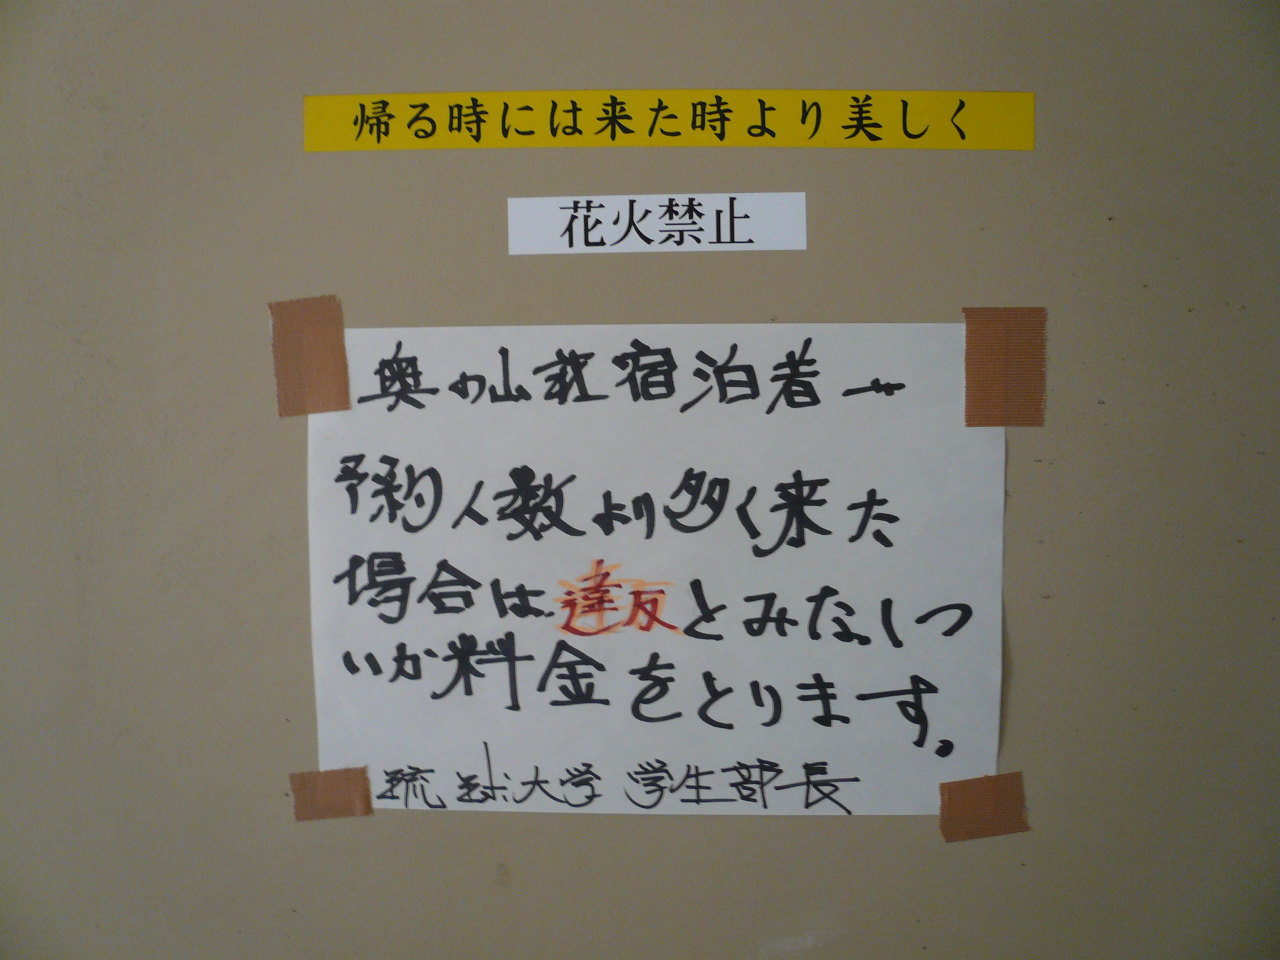 帰る時には来た時より美しく
花火禁止
奥の山荘宿泊者へ
予約人数より多く来た
場合は違反とみなしつ
いか料金をとります。
琉球大学 学生部長